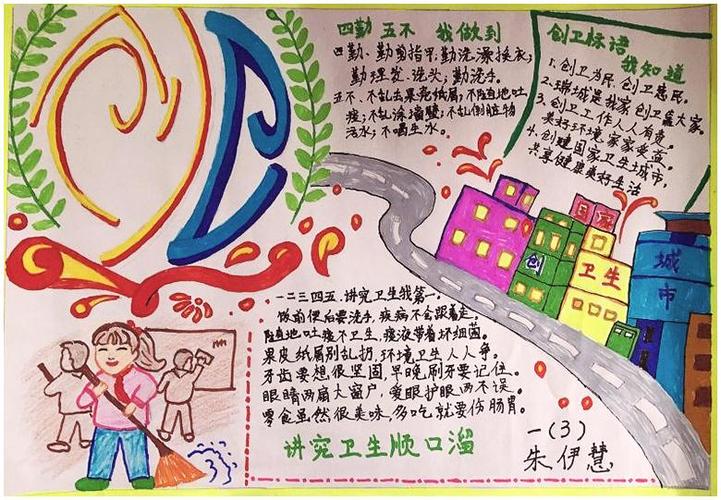 四勤 五不 我做到
四勤、勤剪指甲,勤洗澡换衣;
勤理发、洗头;勤洗手。
五不、不乱丢果壳纸屑;不随地吐
痰;不乱涂墙壁;不乱倒脏物
污水;不喝生水。
创卫标语
我知道
1、创卫为民,创卫惠民。
2、瑞城是我家 创卫靠大家
3、创卫工作人人有责。
美好环境家家受益。
4、创建国家卫生城市,
共享健康美好生活
国家
创
卫生
城市
一二三四五,讲究卫生我第一。
饭前便后要洗手,疾病不会跟着走。
随地吐痰不卫生,痰液带着坏细菌。
果皮纸屑别乱扔,环境卫生人人争。
牙齿要想很坚固,早晚刷牙要记住。
眼睛两扇大窗户,爱眼护眼两不误。
零食虽然很美味,多吃就要伤肠胃。
讲究卫生顺口溜
一(3)
朱伊慧